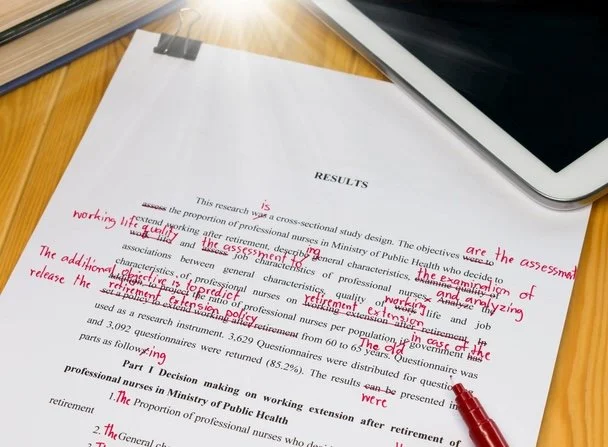 RESULTS
is
This research was a cross-sectional study design. The objectives were to
are the assessment
assess the proportion of professional nurses in Ministry of Public Health who decide to
working life quality
ing
extend working after retirement, describe general characteristics, examine quality of
the examination of
work life and assess job characteristics of professional nurses
the assessment to
and analyzing
associations between general characteristics, quality of work life and job
working
characteristics of professional nurses on working extension after retirement. In
retirement extension
in case of the
The additional objective is to predict
the ratio of professional nurses per population if government has
release the retirement extension policy
set a policy to extend working and retirement from 60 to 65 years. Questionnaire was
The old
used as a research instrument. 3,629 Questionnaires were distributed for
and 3,092 questionnaires were returned (85.2%). The results can be presented in
were
parts as follow
ing
Part 1 Decision making on working extension after retirement of
professional nurses in Ministry of Public Health
1. The Proportion of professional nurses who
retirement
2. The General
The